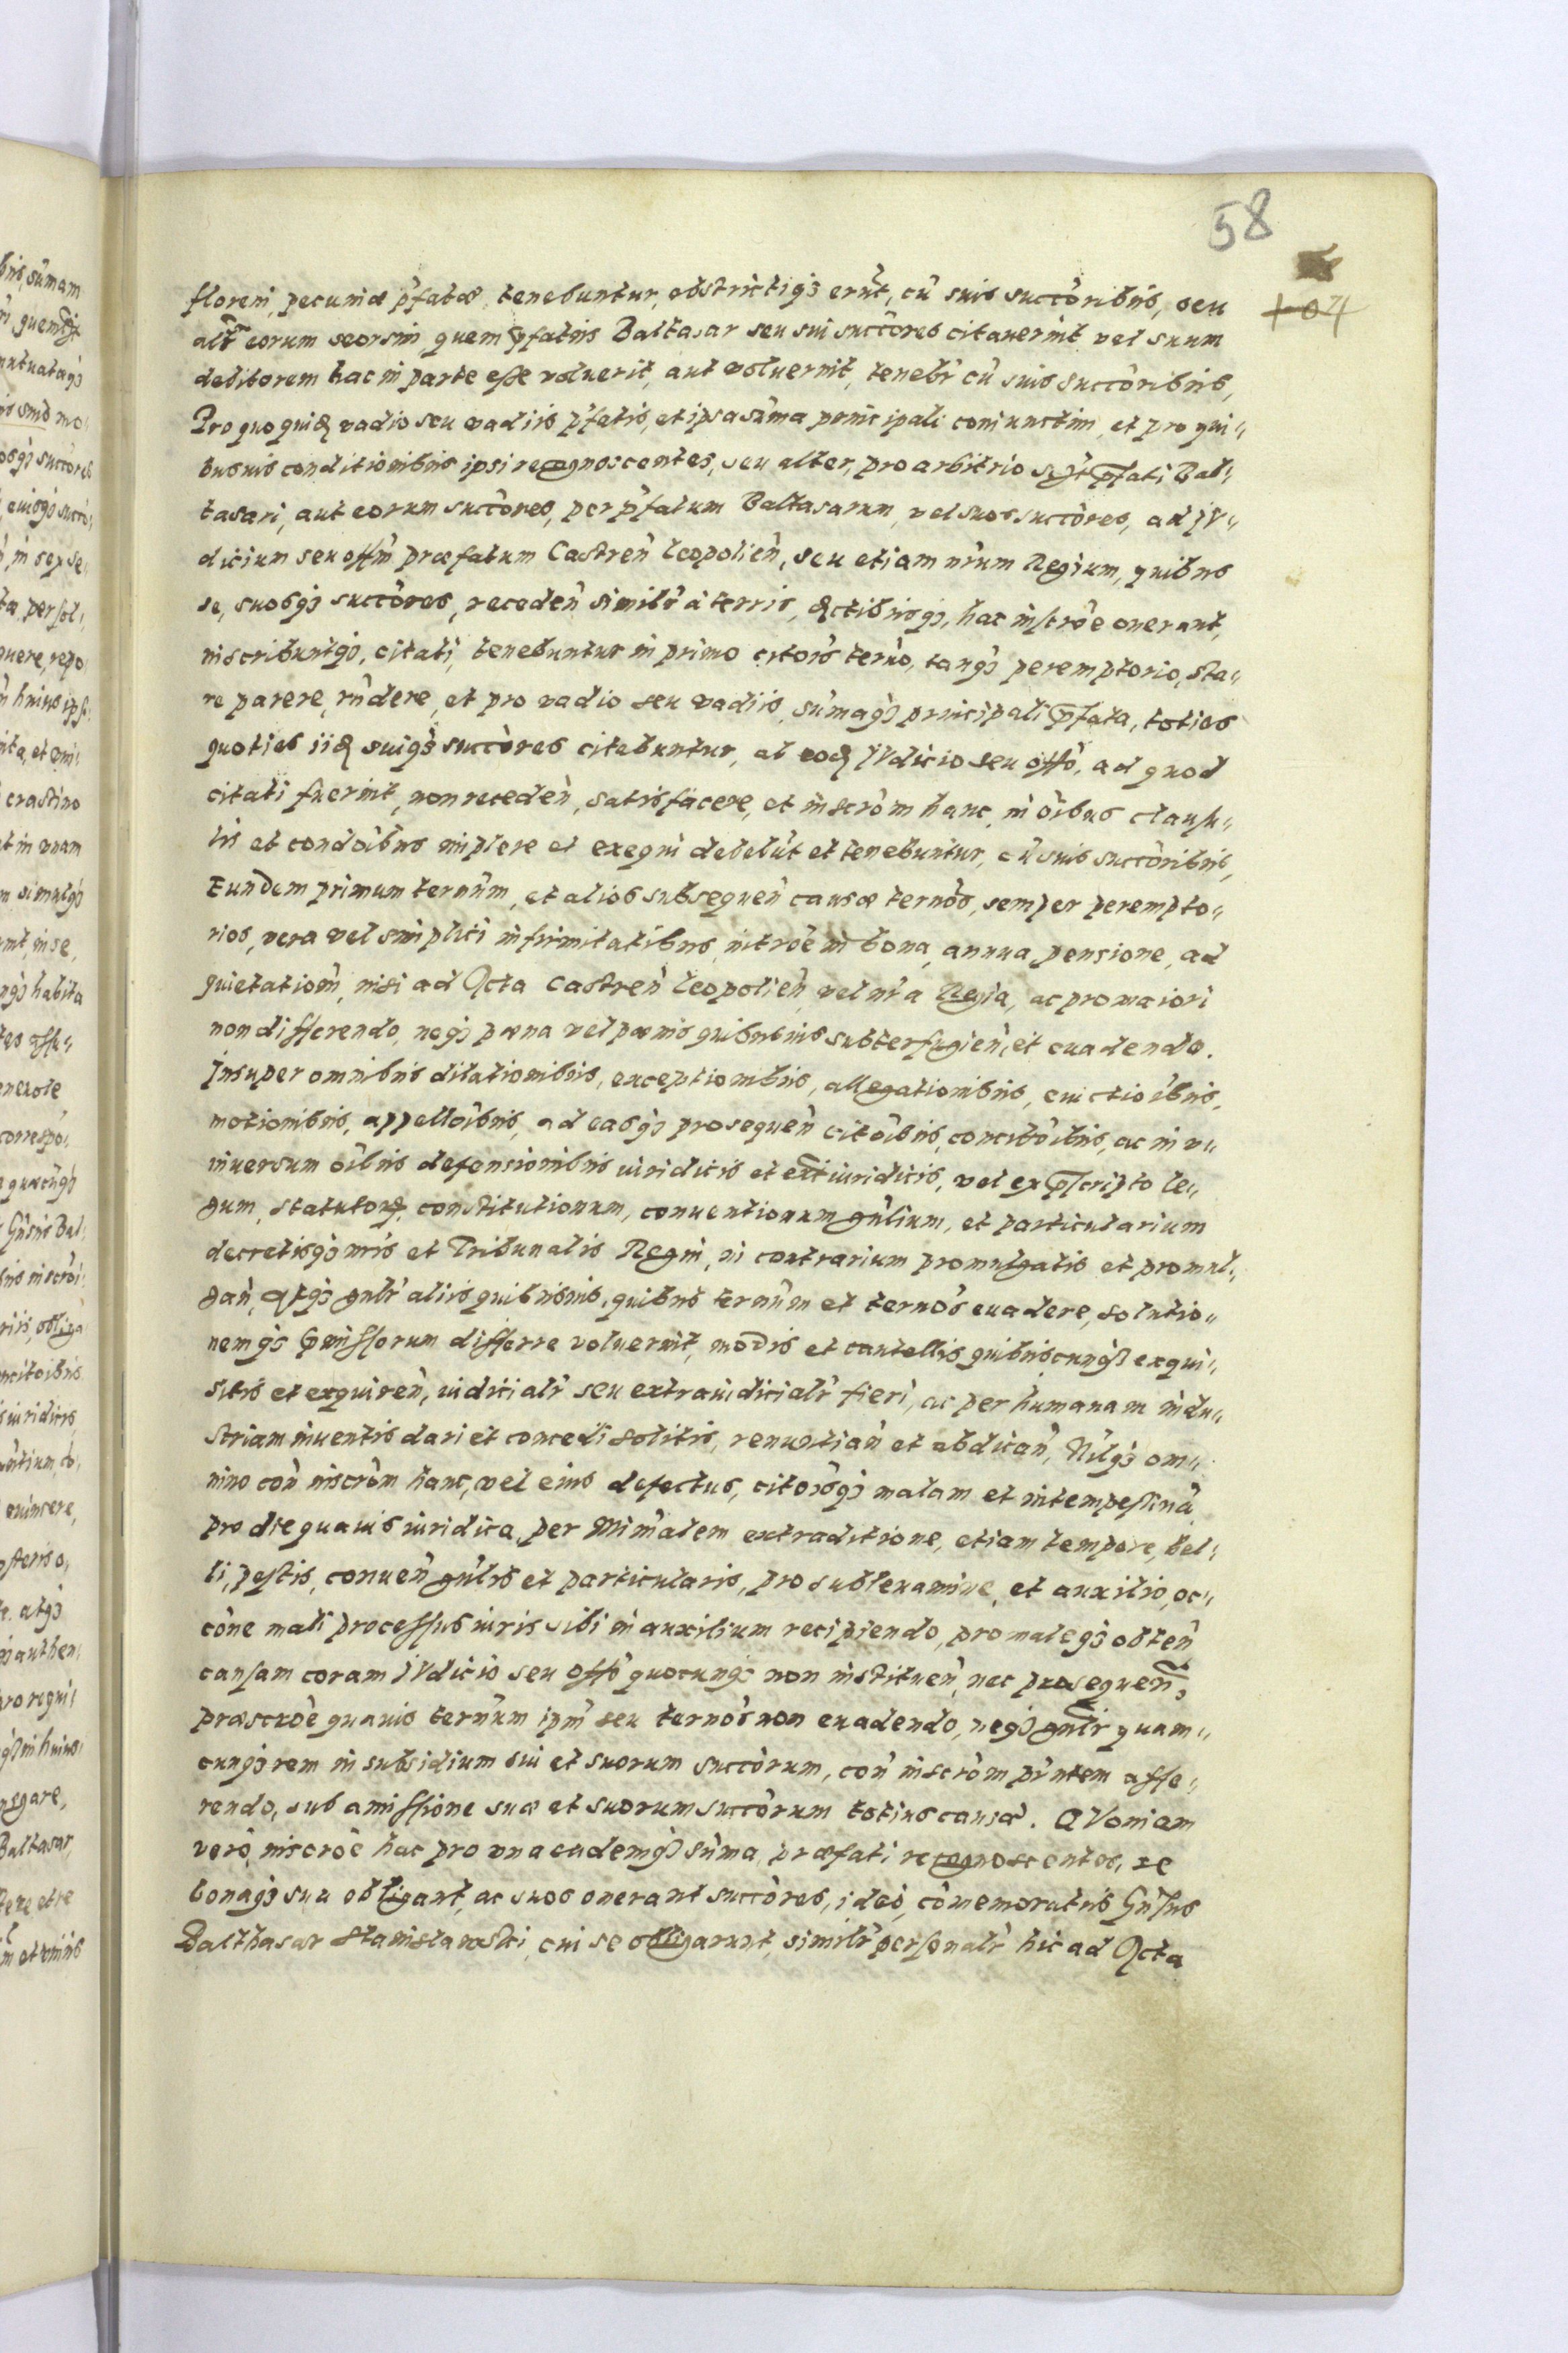 58
104
floreni, pecuniæ p̃fatæ tenebuntur, obstrictiq̨ȝ erũt, cũ suis succõribus, seu
altr̃ eorum seorsim, quem p̃fatus Baltasar seu sui succõres citauerint vel suum
debitorem hac in parte esse voluerit, aut voluerint, tenebr̃ cũ suis succõribus,
Pro quo quidẽ vadio seu vadiis p̃fatis, et ipsa sũma principali coniunctim, et pro qui„
busuis conditionibus ipsi recognoscentes, seu alter, pro arbitrio p̃fati Bal„
tasari, aut eorum succõres, per p̃fatum Baltasarum, vel suos succõres, ad IV„
dicium seu offm̃ præfatum Castreñ Leopolieñ, seu etiam nr̃um Regium, quibus
se, suosq̨ȝ succõres, recedeñ similr̃ à terris, &ctibusq̨ȝ, hac inscrõe onerant,
inscribuntq̨ȝ, citati, tenebuntur in primo citõis termõ, tanq̨ȝ peremptorio, sta„
re parere, rñdere, et pro vadio seu vadiis, sũmaq̨ȝ principali p̃fata, toties
quoties iidẽ suiq̨ȝ succõres citabuntur, ab eodẽ IVdicio seu offõ, ad quod
citati fuerint, non recedeñ, satisfacere, et inscrõm hanc, in õibus clausu„
lis et condõibus implere et exequi debebũt et tenebuntur, cũ suis succõribus,
Eundem primum termĩnm, et alios subsequeñ causæ termõs, semper perempto„
rios, vera vel simplici infirmitatibus, intrõe in bona, annua pensione, ad
quietatiom̃, nisi ad Acta Castreñ Leopolieñ vel nr̃a Regia, ac pro maiori
non differendo, neq̨ȝ pœna vel pœnis quibusuis subterfugieñ, et euadendo.
Insuper omnibus dilationibus, exceptionibus, allegationibus, euictioĩbus,
motionibus, appellõibus, ad easq̨ȝ prosequeñ citõibus, concitõibus, ac in v„
niuersum õibus defensionibus iuridicis et ext̃iuridicis, vel ex p̃scripto le„
gum, statutorũ, constitutionum, conuentionum gñlium, et particularium
decretisq̨ȝ nr̃is et Tribunalis Regni, in contrarium promulgatis et promul„
gañ, atq̨ȝ gñlr̃ aliis quibusuis, quibus termĩnm et termõs euadere, solutio„
nemq̨ȝ p̃missorum differre voluerint, modis et cautellis quibuscunq̨ȝ exqui„
sitis et exquireñ, iudicialr̃ seu extraiudicialr̃ fieri, ac per humanam indu„
striam inuentis dari et concedi solitis, renuntiañ et abdicañ, Nilq̨ȝ om„
nino coñ inscrõm hanc, vel eius defectus, citõisq̨ȝ malam et intempestiuã
pro die quauis iuridica, per Mim̃alem extraditione, etiam tempore, bel„
li, pestis, conueñ gñlis et particularis, pro subleuamine, et auxilio, oc„
cõne mali processus iuris sibi in auxilium recipiendo, pro maleq̨ȝ obteñ
causam coram IVdicio seu offõ quocunq̨ȝ non instituẽñ, nec prosequeñ,
præscrõe quauis termĩnm ipm̃ seu termõs non euadendo, neq̨ȝ gñlr̃ quam„
cunq̨ȝ rem in subsidium sui et suorum succõrum, coñ inscrõm pñtem affe„
rendo, sub amissione suæ et suorum succõrum totius causæ. QVoniam
verò inscrõe hac pro vna eademq̨ȝ sũma, præfati recognoscentes, se
bonaq̨ȝ sua obligant, ac suos onerant succõres, ideò, cõmemoratus Gñsus
Balthasar Stanislawski, cui se obligarunt, similr̃ personalr̃ hic ad Acta